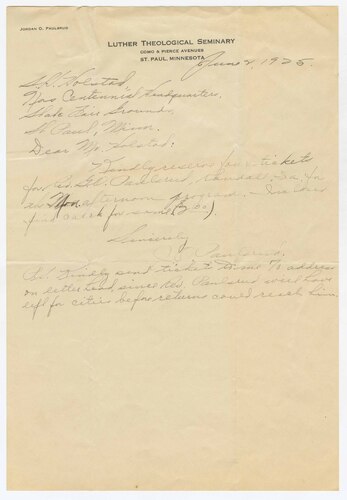 JORDAN O. PAULSRUD
LUTHER THEOLOGICAL SEMINARY
COMO & PIERCE AVENUES
ST. PAUL, MINNESOTA
June 2, 1925.
S. H. Holstad,
Nors Centennial Headquarters,
State Fair Grounds,
St Paul, Minn.
Dear Mr. Holstad:
Kindly reserve four tickets
for Ed. Paulsrud, Kendall, Ia. for
Mon. afternoon program. Inclosed
find check for same
Sincerely
J. O. Paulsrud.
P.S. Kindly send tickets to me % address
on letterhead since Ed. Paulsrud will have
left for cities before returns could reach him.